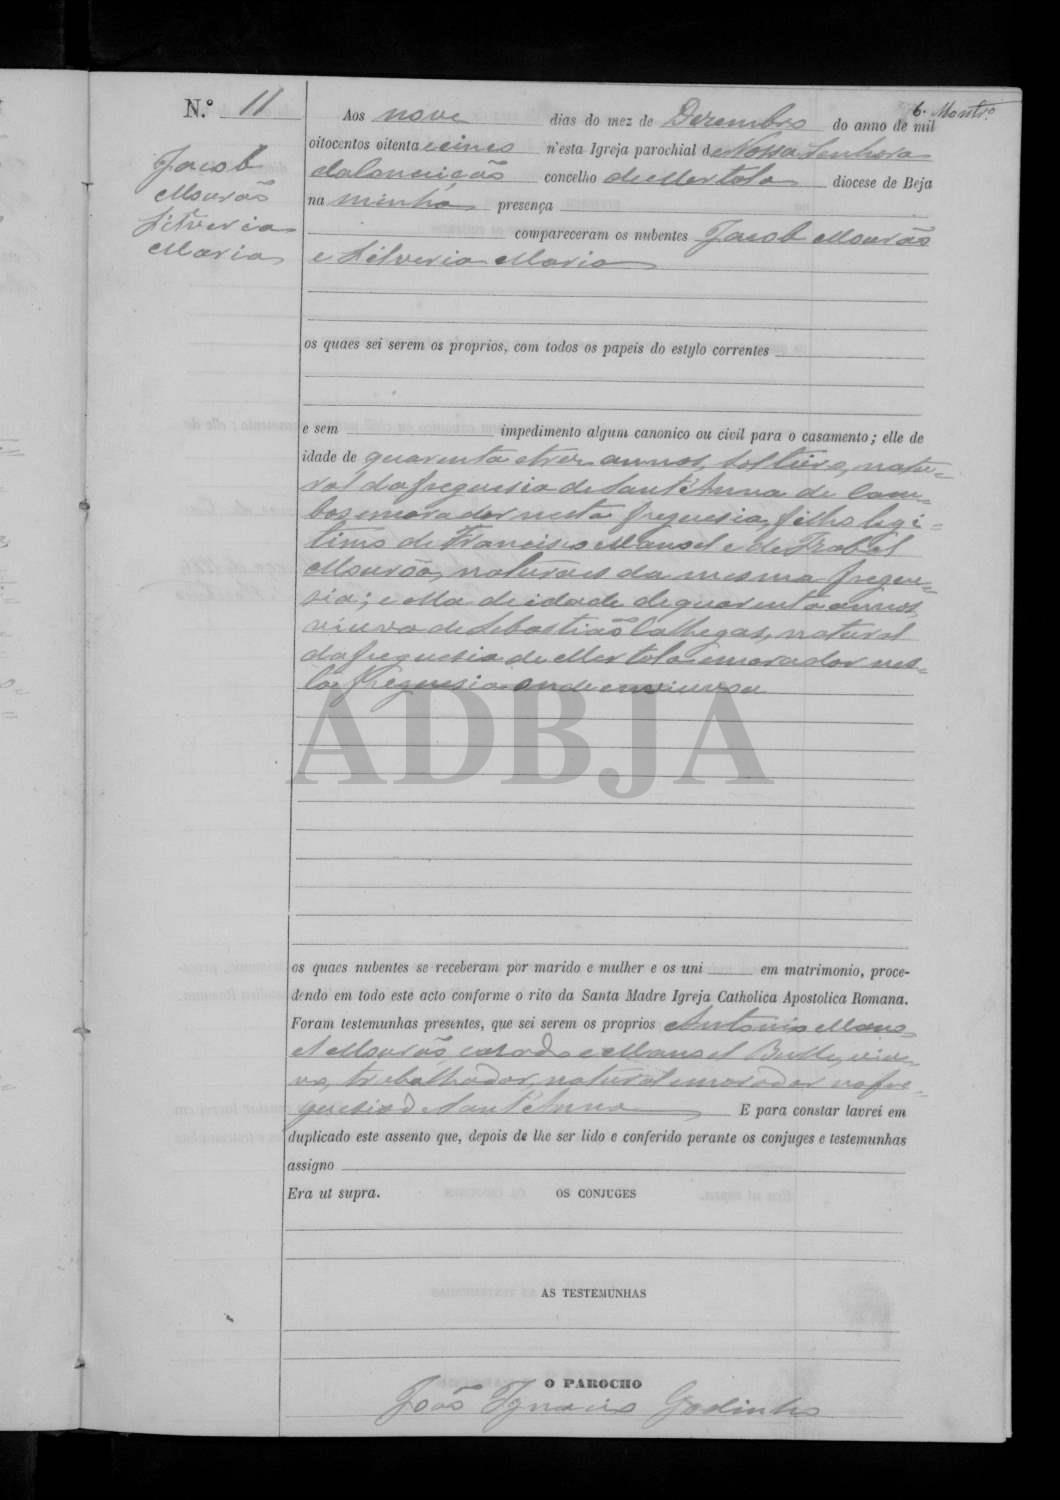 6. Montr.º
N.º 11
Jacob
Mourão
Silveria
Maria
Aos nove dias do mez de Dezembro do anno de mil
oitocentos oitenta e cinco n'esta Igreja parochial de Nossa Senhora
da Conceição concelho de Mertola diocese de Beja
na minha presença
compareceram os nubentes Jacob Mourão
e Silveria Maria
os quaes sei serem os proprios, com todos os papeis do estylo correntes
e sem impedimento algum canonico ou civil para o casamento; elle de
idade de quarenta e trez annos, solteiro, natu-
ral da freguesia de Sant'Anna de Cam-
bas e morador nesta freguesia, filho legi-
timo de Francisco Manoel e de Izabel
Mourão, naturaes da mesma fregue-
sia; e ella de idade de quarenta annos,
viuva de Sebastião natural
da freguesia de Mertola e morador nes-
ta freguesia onde enviuvou
ADBJA
os quaes nubentes se receberam por marido e mulher e os uni em matrimonio, proce-
dendo em todo este acto conforme o rito da Santa Madre Igreja Catholica Apostolica Romana.
Foram testemunhas presentes, que sei serem os proprios Antonio Mano
el Mourão casado e Manoel viu-
vo, trabalhador, natural e morador na fre-
guesia de Sant'Anna E para constar lavrei em
duplicado este assento que, depois de lhe ser lido e conferido perante os conjuges e testemunhas
assigno
Era ut supra. OS CONJUGES
AS TESTEMUNHAS
O PAROCHO
João Ignacio Godinho